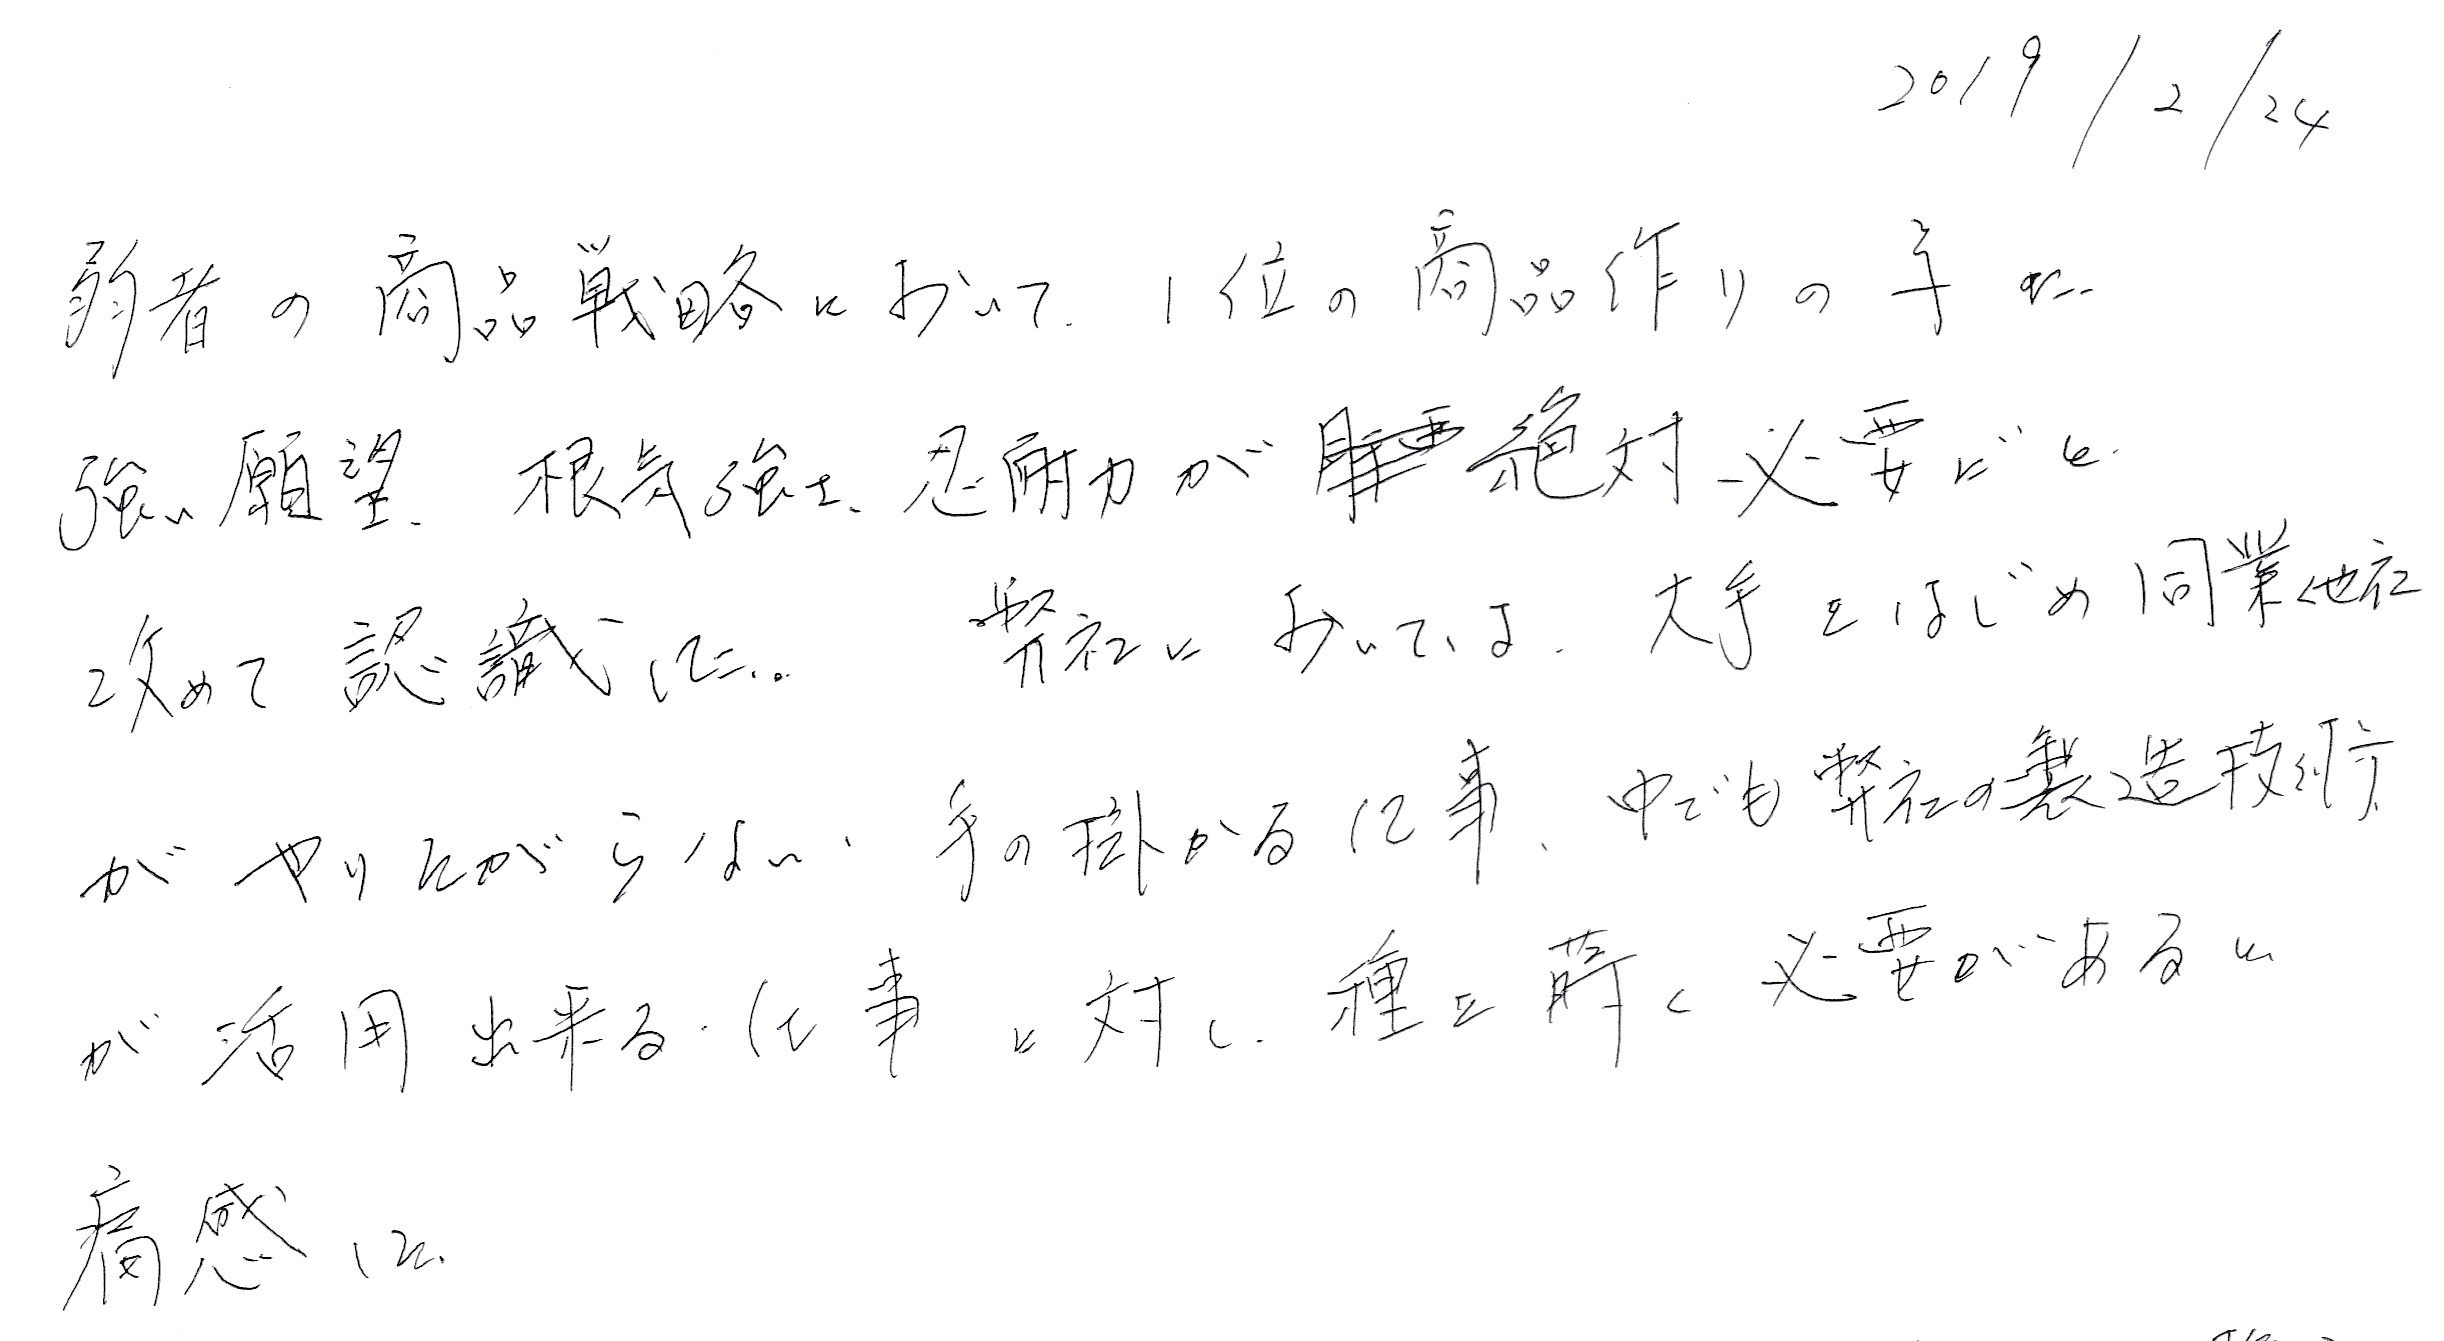 2019/2/24
弱者の商品戦略において、1位の商品作りの手に
強い願望、根気強さ、忍耐力が絶対必要だと、
改めて認識した。弊社においては、大手をはじめ同業他社
がやりたがらない、手の掛かる仕事、中でも弊社の製造技術
が活用出来る仕事に対し、種を蒔く必要があると
痛感した。